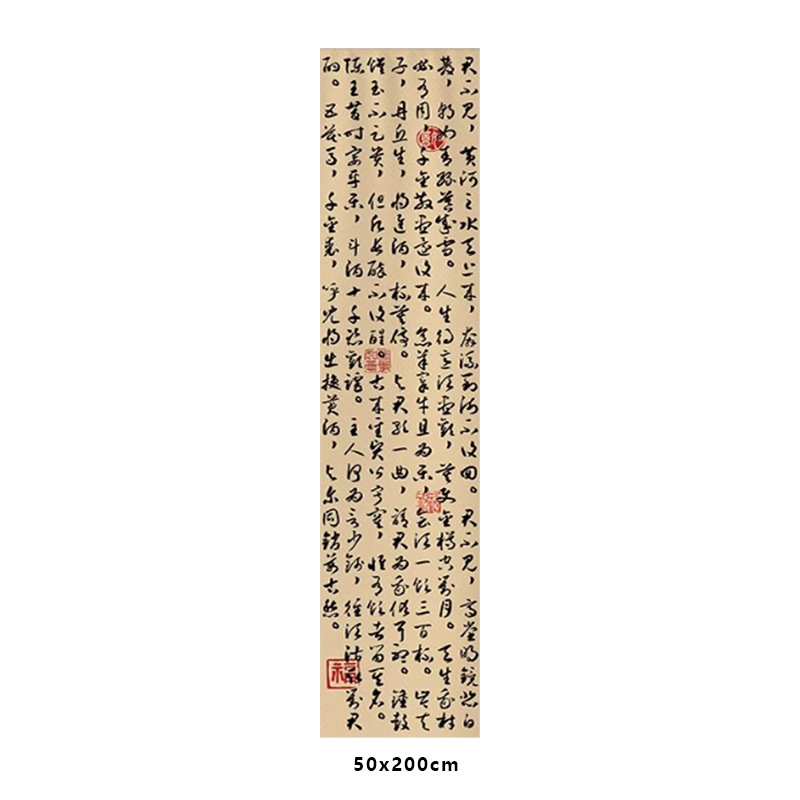 君不见，黄河之水天上来，奔流到海不复回。君不见，高堂明镜悲白
发，朝如青丝暮成雪。人生得意须尽欢，莫使金樽空对月。天生我材
必有用，千金散尽还复来。烹羊宰牛且为乐，会须一饮三百杯。岑夫
子，丹丘生，将进酒，杯莫停。与君歌一曲，请君为我倾耳听。钟鼓
馔玉不足贵，但愿长醉不复醒。古来圣贤皆寂寞，惟有饮者留其名。
陈王昔时宴平乐，斗酒十千恣欢谑。主人何为言少钱，径须沽取对君
酌。五花马，千金裘，呼儿将出换美酒，与尔同销万古愁。
福
50x200cm